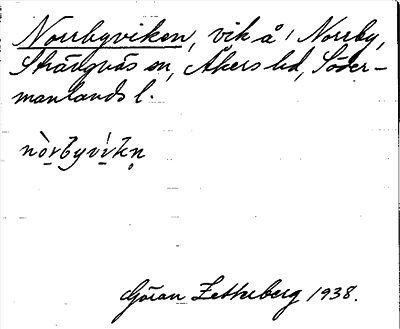 Norrbyviken, vik å i Norrby,
Strängnäs sn, Åkers hd, Söder-
manlands l.
nòrbyvíkn̥
Göran Zetterberg 1938.